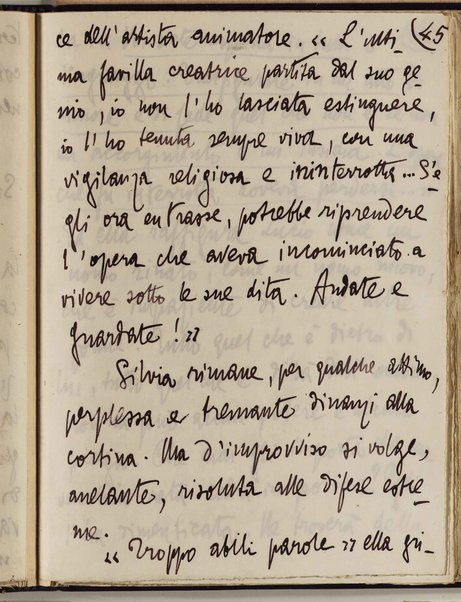 45
ce dell'artista animatore. « L'ulti-
ma favilla creatrice partita dal suo ge-
nio, io non l'ho lasciata estinguere,
io l'ho tenuta sempre viva, con una
vigilanza religiosa e ininterrotta... S'e-
gli ora entrasse, potrebbe riprendere
l'opera che aveva incominciato a
vivere sotto le sue dita. Andate e
guardate! »
Silvia rimane, per qualche attimo,
perplessa e tremante dinanzi alla
cortina. Ma d'improvviso si volge,
anelante, risoluta alle difese estre-
me.
« Troppo abili parole » ella gri-